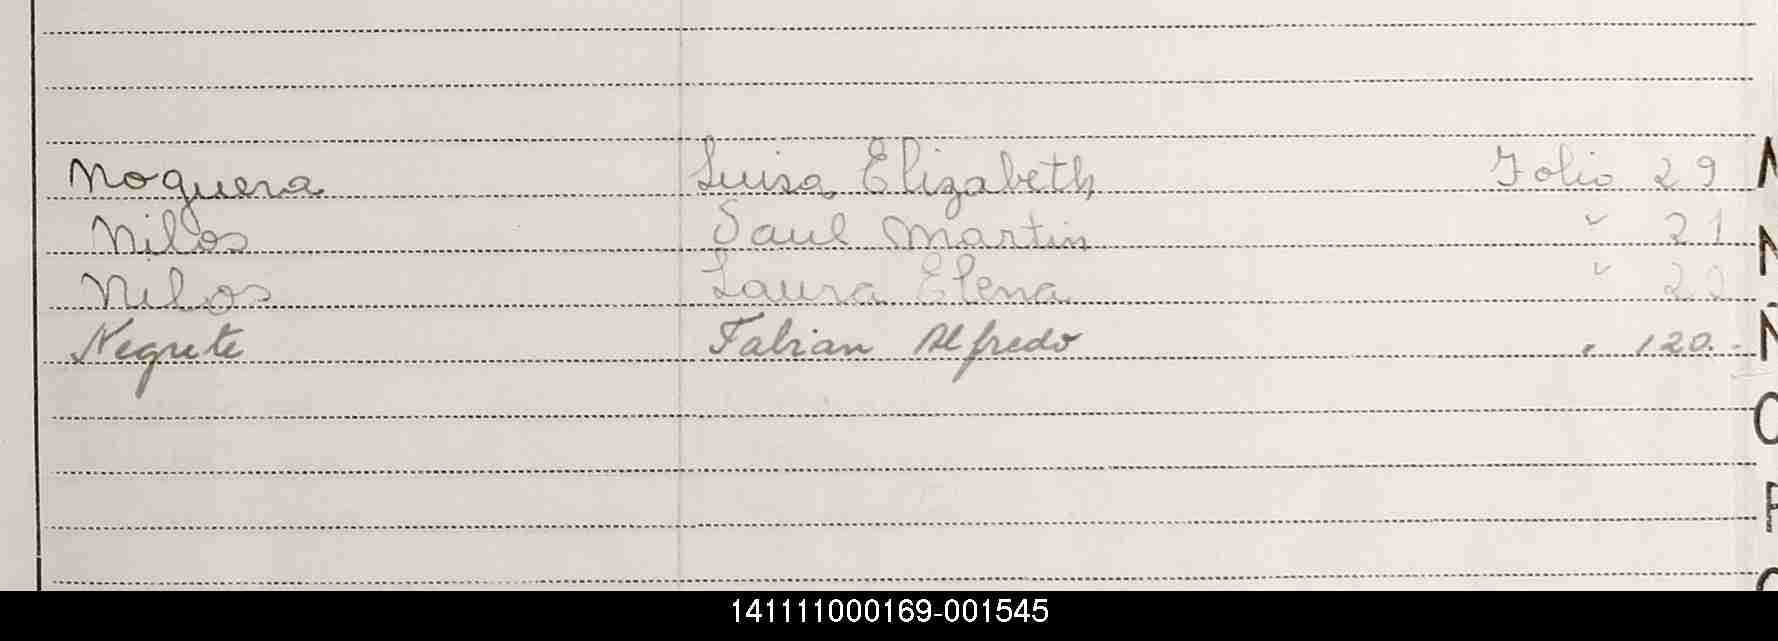 Noguera Luisa Elizabeth Folio 29
Nilos Saul Martin " 21
Nilos Laura Elena " 22
Negrete Fabian Alfredo " 120.-
N
N
Ñ
O
P
141111000169-001545